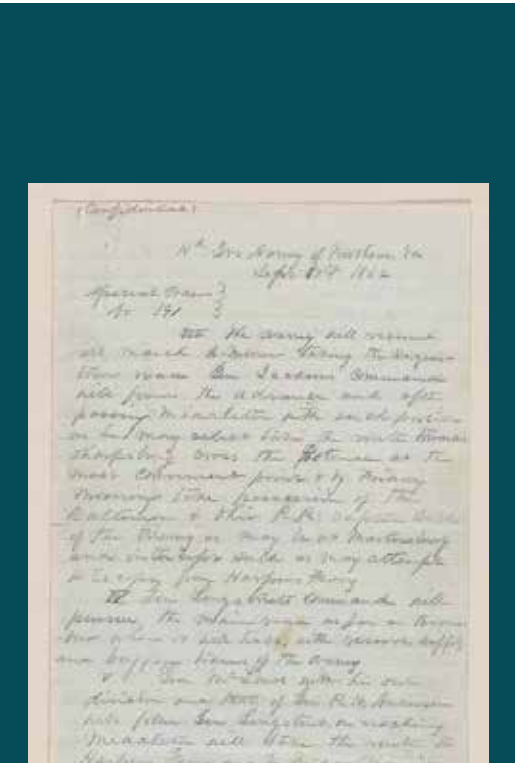 (Confidential)
Hd Qrs Army of Northern Va
Sept 1862
Special Orders }
No 191 }
The army will resume
its march to-morrow taking the Hagers-
town road. Gen Jacksons Command
will form the advance and after
passing Middletown with such portion
as he may select take the route towards
Sharpsburg cross the Potomac at the
most convenient point & by Friday
morning take possession of the
Baltimore & Ohio R.R. capture such
of the Enemy as may be at Martinsburg
and intercept such as may attempt
to escape from Harpers Ferry
Gen Longstreets Command will
pursue the main road as far as Boons-
boro where it will halt, with reserve supply
and baggage trains of the army
Gen McLaws with his own
division and that of Gen R.H. Anderson
will follow Gen Longstreet on reaching
Middletown will take the route to
Harpers